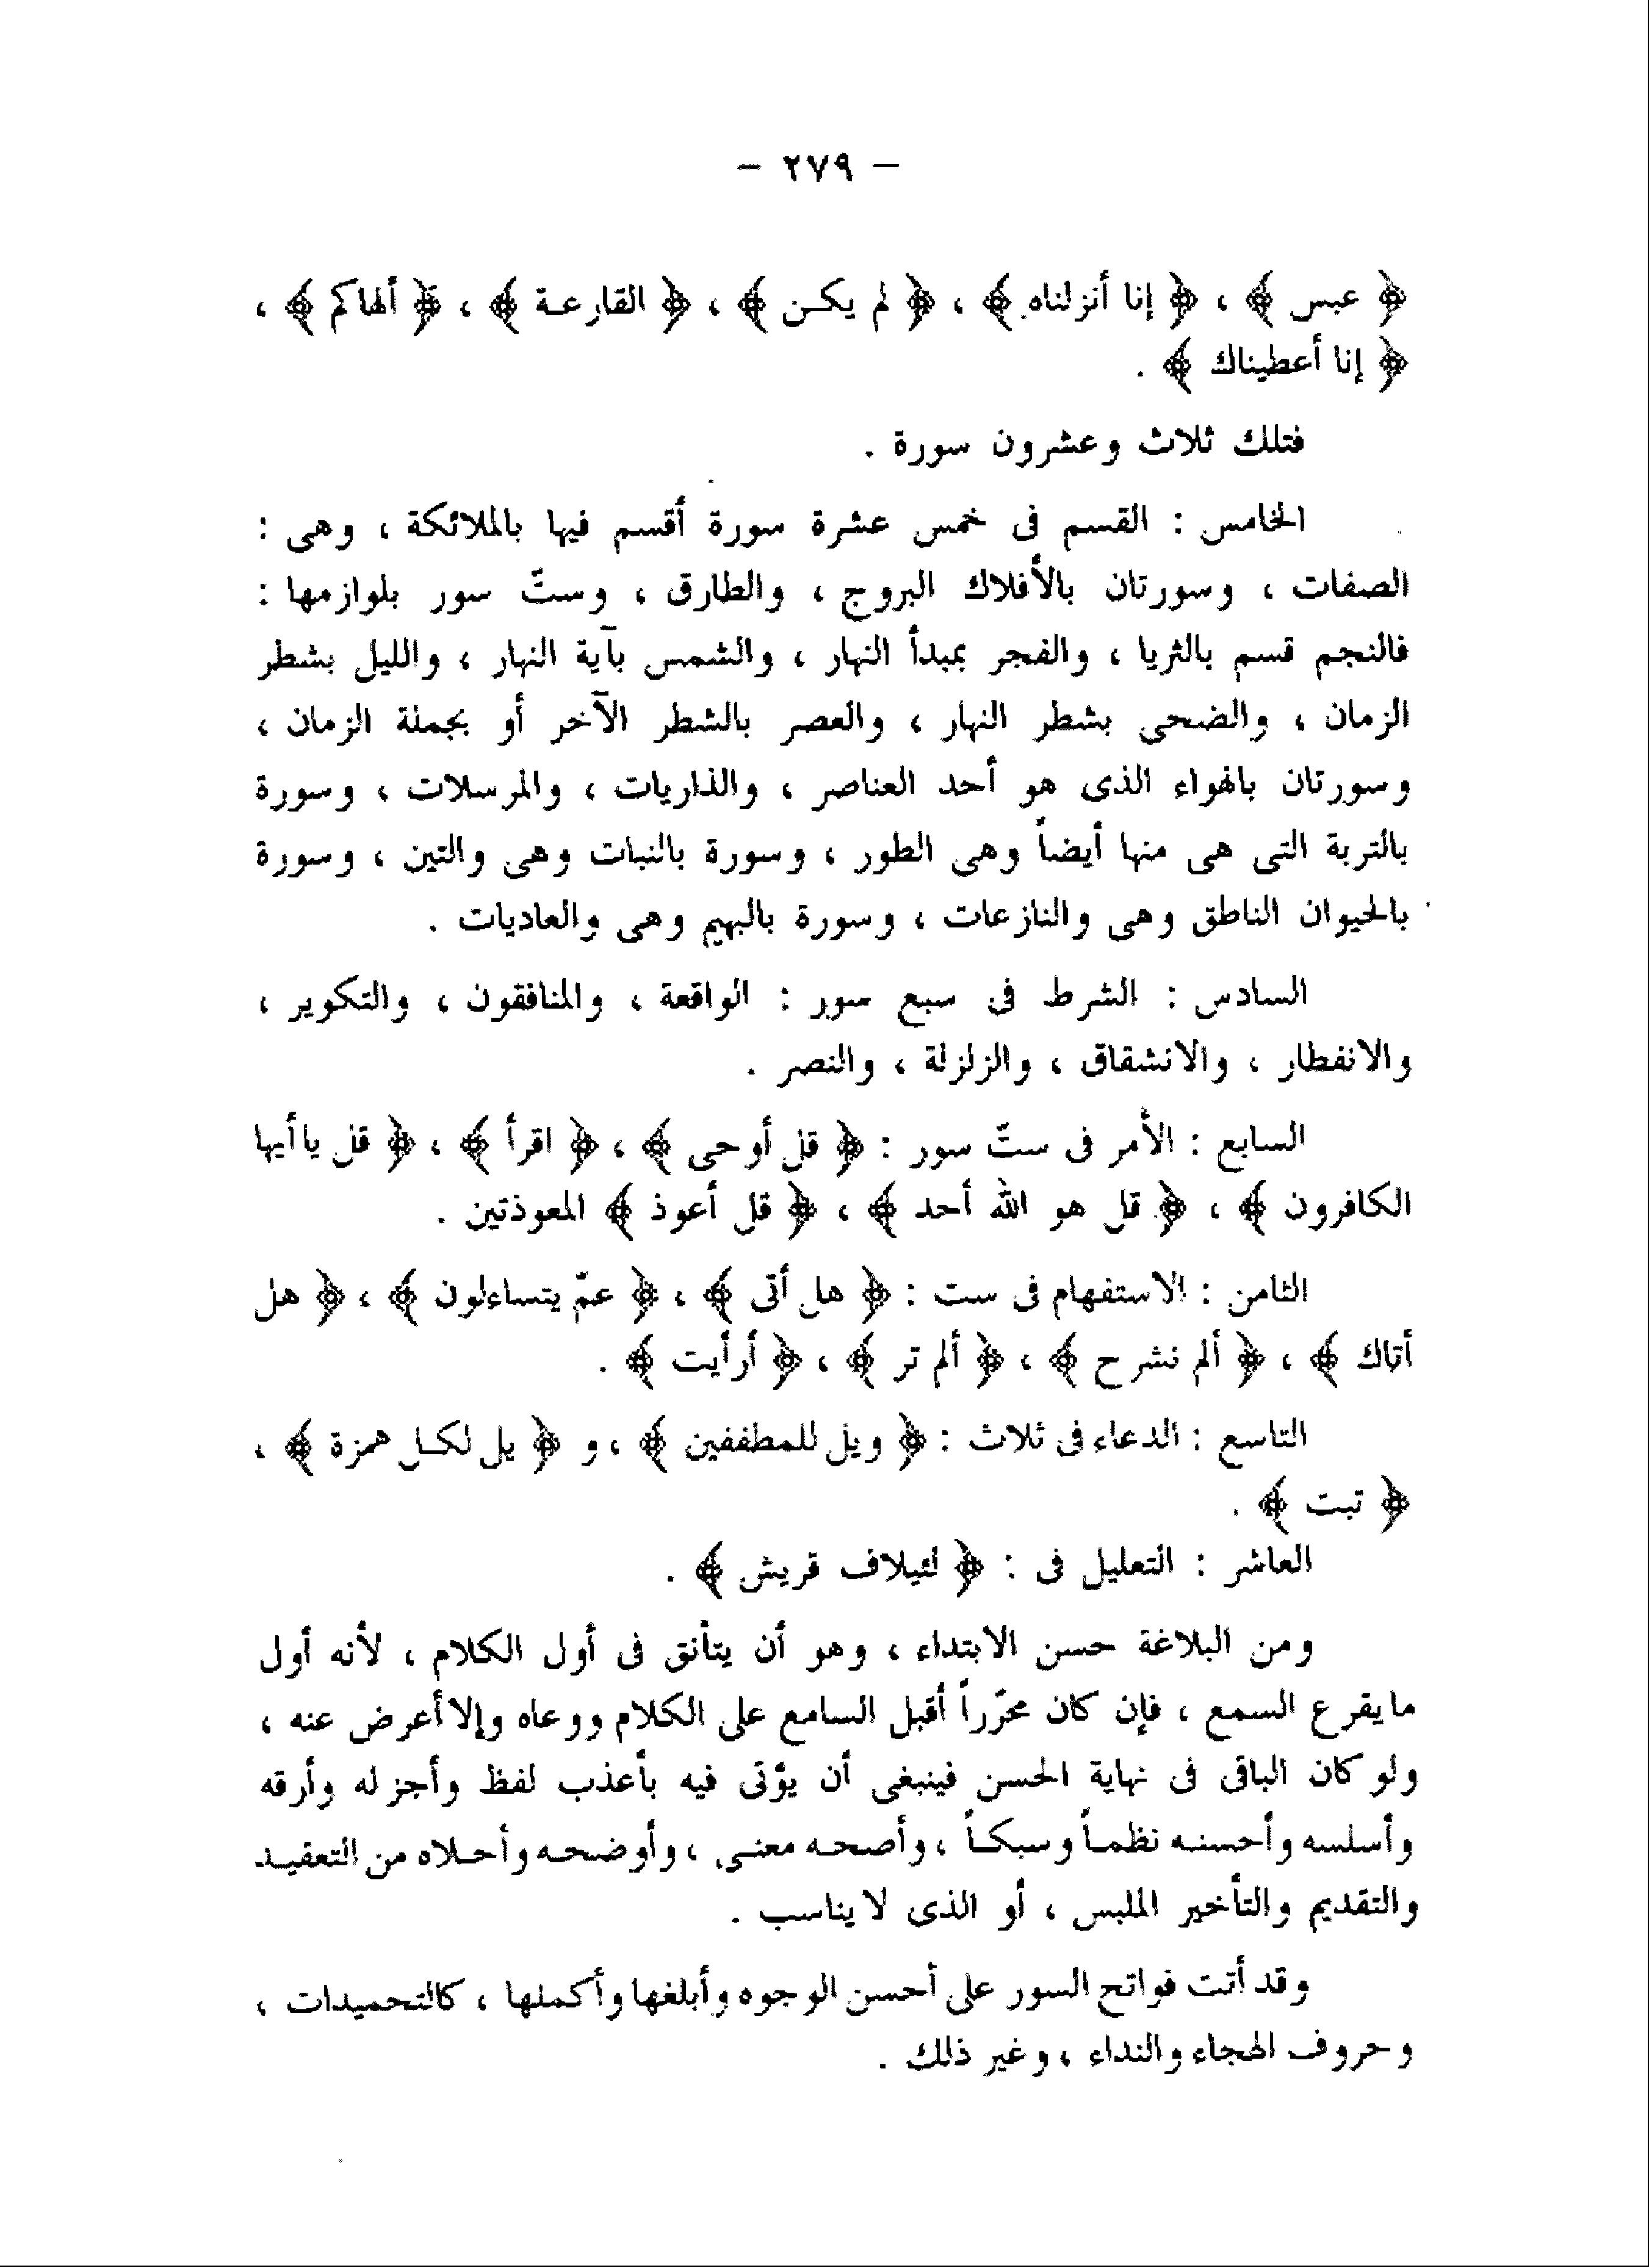 – ٢٧٩ –
﴿ عبس ﴾ ، ﴿ إنا أنزلناه ﴾ ، ﴿ لم يكـن ﴾ ، ﴿ القارعـة ﴾ ، ﴿ ألهاكم ﴾ ،
﴿ إنا أعطيناك ﴾ .
فتلك ثلاث وعشرون سورة .
الخامس : القسم فى خمس عشرة سورة أقسم فيها بالملائكة ، وهى :
الصفات ، وسورتان بالأفلاك البروج ، والطارق ، وستّ سور بلوازمها :
فالنجم قسم بالثريا ، والفجر بمبدأ النهار ، والشمس بآية النهار ، والليل بشطر
الزمان ، والضحى بشطر النهار ، والعصر بالشطر الآخر أو بجملة الزمان ،
وسورتان بالهواء الذى هو أحد العناصر ، والذاريات ، والمرسلات ، وسورة
بالتربة التى هى منها أيضاً وهى الطور ، وسورة بالنبات وهى والتين ، وسورة
بالحيوان الناطق وهى والنازعات ، وسورة بالبهيم وهى والعاديات .
السادس : الشرط فى سبع سور : الواقعة ، والمنافقون ، والتكوير ،
والانفطار ، والانشقاق ، والزلزلة ، والنصر .
السابع : الأمر فى ستّ سور : ﴿ قل أوحى ﴾ ، ﴿ اقرأ ﴾ ، ﴿ قل يا أيها
الكافرون ﴾ ، ﴿ قل هو الله أحد ﴾ ، ﴿ قل أعوذ ﴾ المعوذتين .
الثامن : الاستفهام فى ست : ﴿ هل أتى ﴾ ، ﴿ عمّ يتساءلون ﴾ ، ﴿ هل
أتاك ﴾ ، ﴿ ألم نشرح ﴾ ، ﴿ ألم تر ﴾ ، ﴿ أرأيت ﴾ .
التاسع : الدعاء فى ثلاث : ﴿ ويل للمطففين ﴾ ، و ﴿ يل لكـل همزة ﴾ ،
﴿ تبت ﴾ .
العاشر : التعليل فى : ﴿ لئيلاف قريش ﴾ .
ومن البلاغة حسن الابتداء ، وهو أن يتأنق فى أول الكلام ، لأنه أول
ما يقرع السمع ، فإن كان محرّراً أقبل السامع على الكلام ووعاه وإلا أعرض عنه ،
ولو كان الباقى فى نهاية الحسن فينبغى أن يؤتى فيه بأعذب لفظ وأجزله وأرقه
وأسلسه وأحسنـه نظمـاً وسبكـاً ، وأصحـه معنـى ، وأوضحـه وأحـلاه من التعقيـد
والتقديم والتأخير الملبس ، أو الذى لا يناسب .
وقد أتت فواتح السور على أحسن الوجوه وأبلغها وأكملها ، كالتحميدات ،
وحروف الهجاء والنداء ، وغير ذلك .